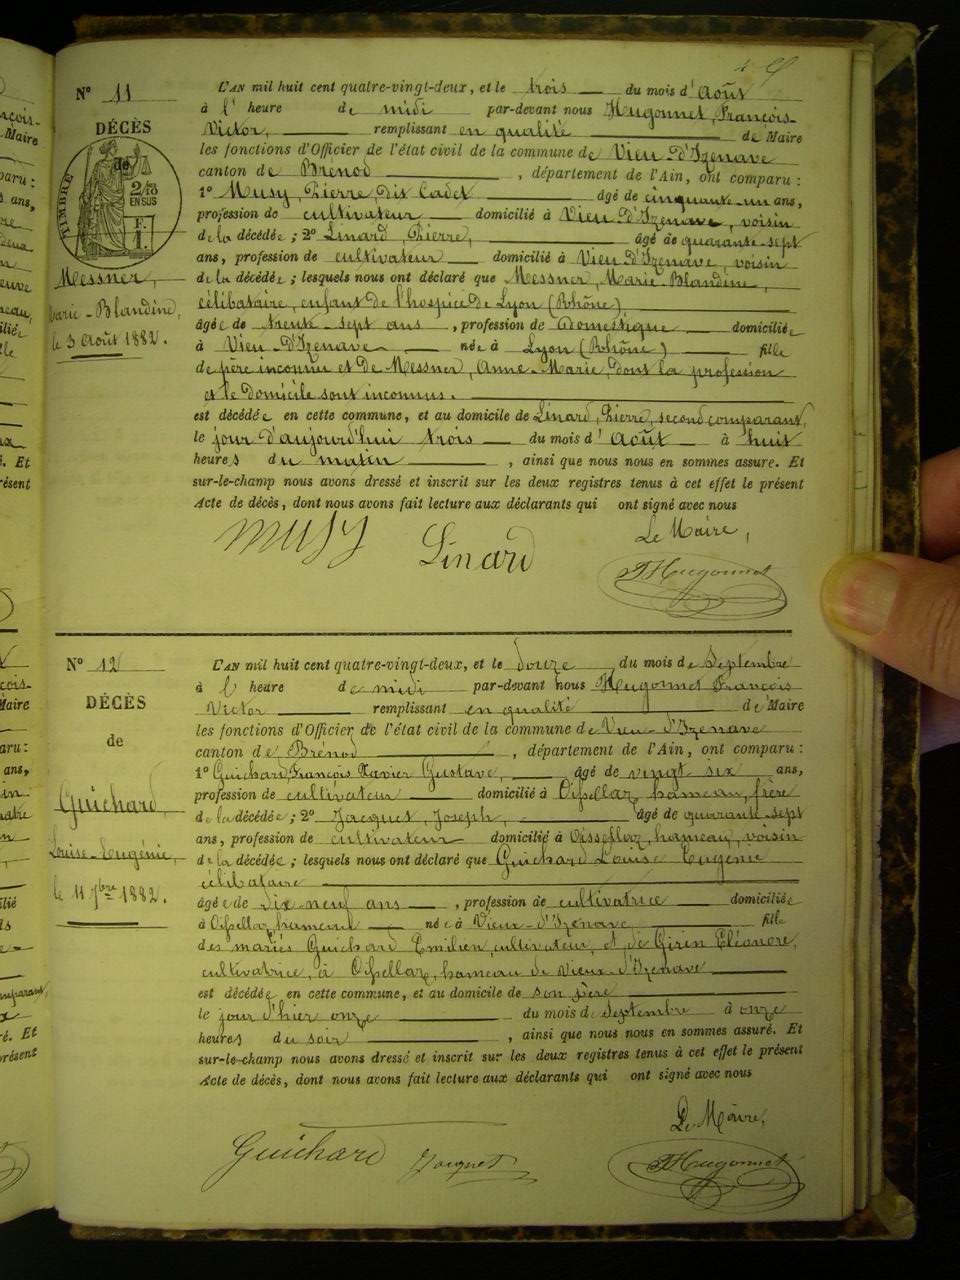 N° 11
DÉCÈS
de
TIMBRE
2/10
EN SUS
F.
1.
Messner,
Marie-Blandine,
le 3 Août 1882.
L'AN mil huit cent quatre-vingt-deux, et le trois du mois d'Août
à l' heure de midi par-devant nous Hugonnet, François-
Victor, remplissant en qualité de Maire
les fonctions d'Officier de l'état civil de la commune de Vieu-d'Izenave
canton de Brénod, département de l'Ain, ont comparu :
1° Musy, Pierre, dit Cadet âgé de cinquante-un ans,
profession de cultivateur domicilié à Vieu-d'Izenave, voisin
de la décédée ; 2° Linard, Pierre, âgé de quarante-sept
ans, profession de cultivateur domicilié à Vieu-d'Izenave, voisin
de la décédée ; lesquels nous ont déclaré que Messner, Marie Blandine,
célibataire, enfant de l'hospice de Lyon (Rhône),
âgée de trente-sept ans, profession de domestique domiciliée
à Vieu-d'Izenave née à Lyon (Rhône) fille
de père inconnu et de Messner, Anne-Marie, dont la profession
et le domicile sont inconnus.
est décédée en cette commune, et au domicile de Linard, Pierre, second comparant,
le jour d'aujourd'hui trois du mois d'Août à huit
heures du matin, ainsi que nous nous en sommes assuré. Et
sur-le-champ nous avons dressé et inscrit sur les deux registres tenus à cet effet le présent
Acte de décès, dont nous avons fait lecture aux déclarants qui ont signé avec nous
Le Maire,
Musy Linard FHugonnet
N° 12
DÉCÈS
de
Guichard,
Louise-Eugénie,
le 11 7bre 1882.
L'AN mil huit cent quatre-vingt-deux, et le douze du mois de Septembre
à l' heure de midi par-devant nous Hugonnet François
Victor remplissant en qualité de Maire
les fonctions d'Officier de l'état civil de la commune de Vieu-d'Izenave
canton de Brénod, département de l'Ain, ont comparu :
1° Guichard, François Xavier Gustave, âgé de vingt-six ans,
profession de cultivateur domicilié à Oissellaz, hameau, frère
de la décédée ; 2° Jacquet, Joseph, âgé de quarante-sept
ans, profession de cultivateur domicilié à Oissellaz, hameau, voisin
de la décédée ; lesquels nous ont déclaré que Guichard Louise Eugénie
célibataire
âgée de dix-neuf ans, profession de cultivatrice domiciliée
à Oissellaz, hameau née à Vieux-d'Izenave fille
des mariés Guichard Emilien, cultivateur, et de Girin Eléonore,
cultivatrice, à Oissellaz, hameau de Vieux-d'Izenave
est décédée en cette commune, et au domicile de son père
le jour d'hier onze du mois de septembre à onze
heures du soir, ainsi que nous nous en sommes assuré. Et
sur-le-champ nous avons dressé et inscrit sur les deux registres tenus à cet effet le présent
Acte de décès, dont nous avons fait lecture aux déclarants qui ont signé avec nous
Le Maire,
Guichard Jacquet FHugonnet